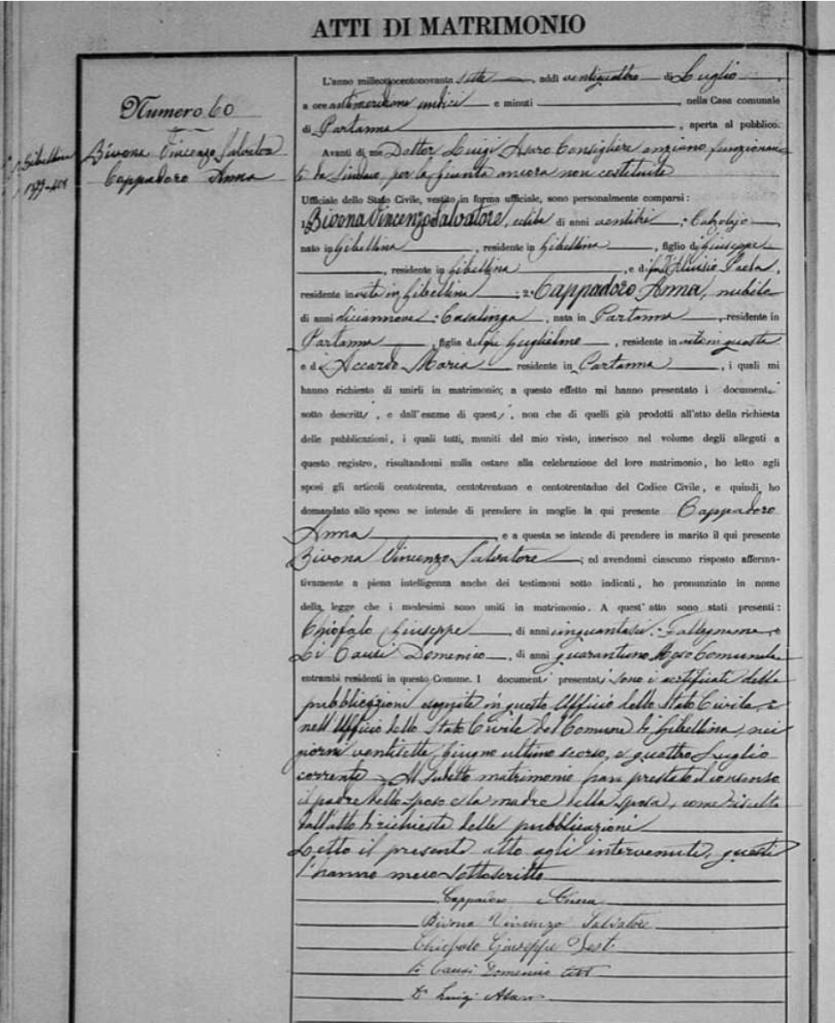 ATTI DI MATRIMONIO
Numero 60
Bivona Vincenzo Salvatore
Cappadoro Anna
Gibellina
L'anno milleottocentonovanta sette, addì ventiquattro di Luglio,
a ore antimeridiane undici e minuti, nella Casa comunale
di Partanna, aperta al pubblico.
Avanti di me Dottor Luigi Asaro Consigliere anziano funzionan-
te da Sindaco, per la Giunta ancora non costituita
Uffiziale dello Stato Civile, vestito in forma uffiziale, sono personalmente comparsi:
1. Bivona Vincenzo Salvatore, celibe di anni ventitre, Calzolajo,
nato in Gibellina, residente in Gibellina, figlio di Giuseppe
, residente in Gibellina, e di fu Paola,
residente in vita in Gibellina; 2. Cappadoro Anna, nubile
di anni diciannove, Casalinga, nata in Partanna, residente in
Partanna, figlia del fu Guglielmo, residente in vita in questa
e di Accardo Maria residente in Partanna, i quali mi
hanno richiesto di unirli in matrimonio; a questo effetto mi hanno presentato i documenti
sotto descritti, e dall'esame di questi, non che di quelli già prodotti all'atto della richiesta
delle pubblicazioni, i quali tutti, muniti del mio visto, inserisco nel volume degli allegati a
questo registro, risultandomi nulla ostare alla celebrazione del loro matrimonio, ho letto agli
sposi gli articoli centotrenta, centotrentuno e centotrentadue del Codice Civile, e quindi ho
domandato allo sposo se intende di prendere in moglie la qui presente Cappadoro
Anna e a questa se intende di prendere in marito il qui presente
Bivona Vincenzo Salvatore; ed avendomi ciascuno risposto afferma-
tivamente a piena intelligenza anche dei testimoni sotto indicati, ho pronunziato in nome
della legge che i medesimi sono uniti in matrimonio. A quest'atto sono stati presenti:
Chiofalo Giuseppe, di anni cinquantasei, Fallegname, e
Li Causi Domenico, di anni quarantuno Agso Comunale
entrambi residenti in questo Comune. I documenti presentati sono i certificati delle
pubblicazioni eseguite in questo Ufficio dello Stato Civile, e
nell'Ufficio dello Stato Civile del Comune di Gibellina, nei
giorni ventisette Giugno ultimo scorso, e quattro Luglio
corrente. Al sudetto matrimonio han prestato il consenso
il padre dello sposo e la madre della sposa, come risulta
dall'atto di richiesta delle pubblicazioni
Letto il presente atto agli intervenuti, questi
l'hanno meco sottoscritto
Cappadoro Anna
Bivona Vincenzo Salvatore
Chiofalo Giuseppe Test.
Li Causi Domenico test
Dr Luigi Asaro